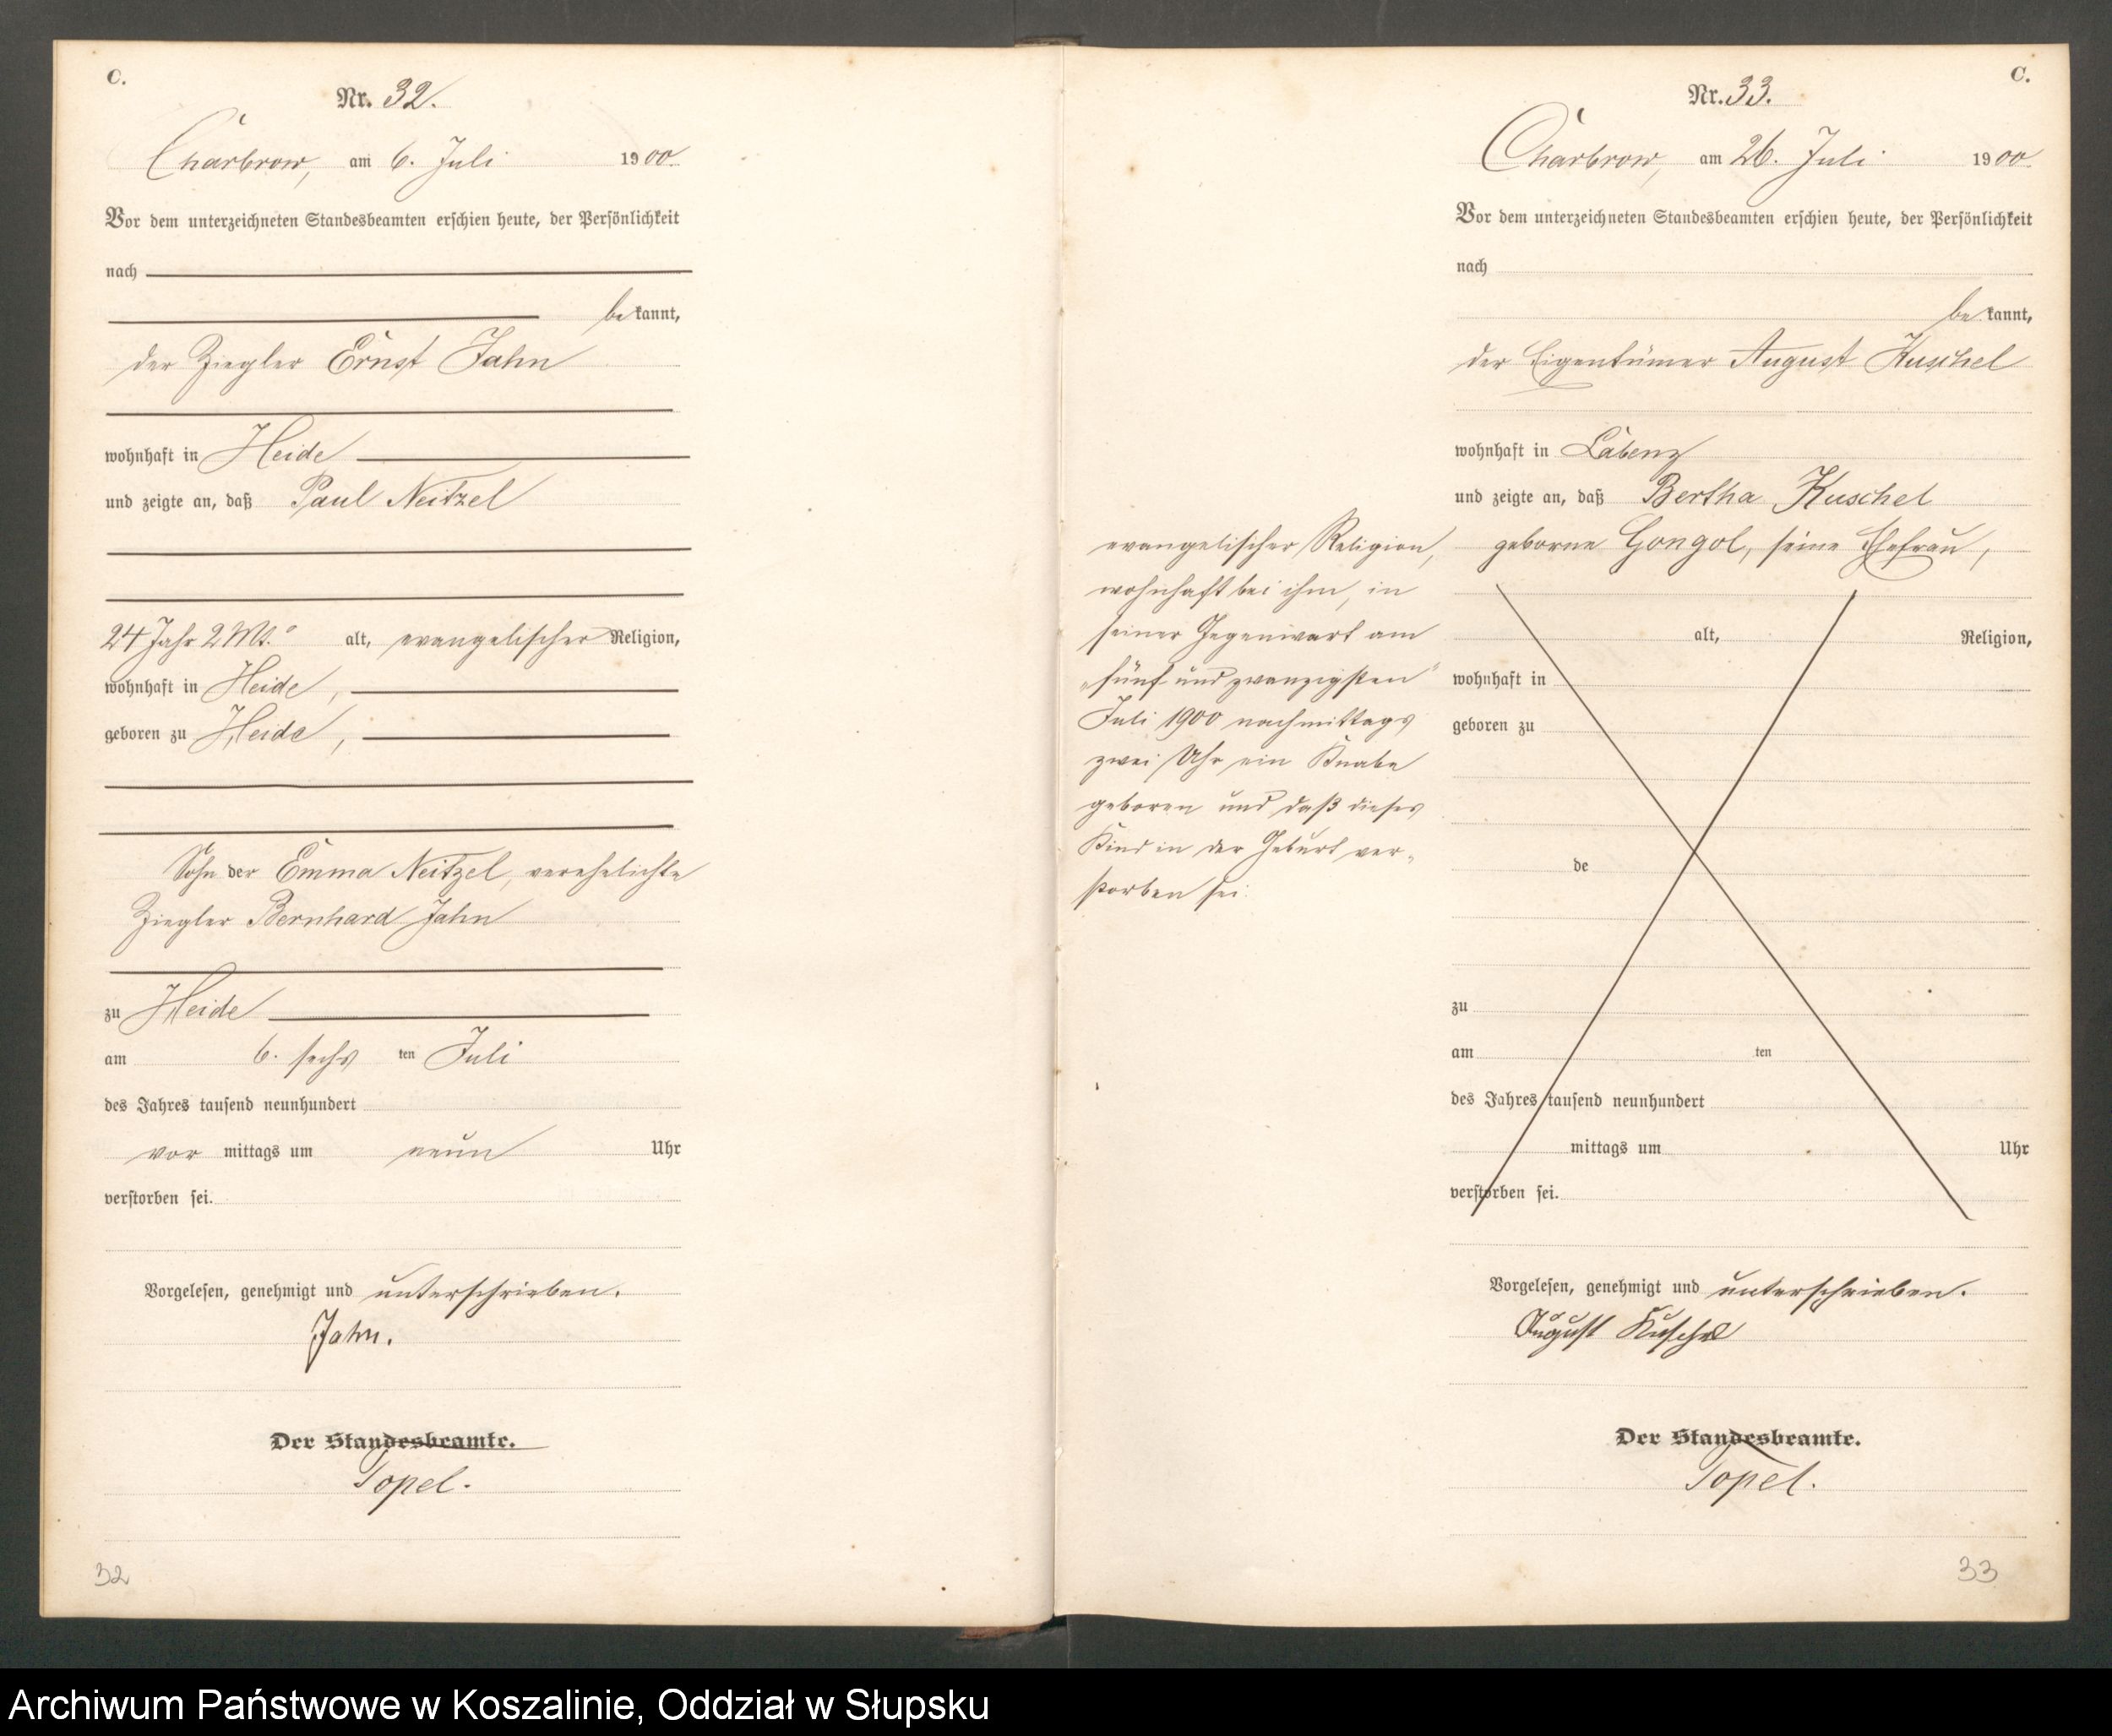 C.
Nr. 32.
Charbrow, am 6. Juli 1900.
Vor dem unterzeichneten Standesbeamten erschien heute, der Persönlichkeit
nach
bekannt,
der Ziegler Ernst Jahn
wohnhaft in Heide
und zeigte an, daß Paul Neitzel
24 Jahr 2 Mt. alt, evangelischer Religion,
wohnhaft in Heide,
geboren zu Heide,
Sohn der Emma Neitzel, verehelichte
Ziegler Bernhard Jahn
zu Heide
am 6. sechs ten Juli
des Jahres tausend neunhundert
vor mittags um neun Uhr
verstorben sei.
Vorgelesen, genehmigt und unterschrieben.
Jahn.
Der Standesbeamte.
Topel.
32
C.
Nr. 33.
Charbrow, am 26. Juli 1900.
Vor dem unterzeichneten Standesbeamten erschien heute, der Persönlichkeit
nach
bekannt,
der Eigentümer August Kuschel
wohnhaft in Labenz
und zeigte an, daß Bertha Kuschel
geborne Gongol, seine Ehefrau,
evangelischer Religion,
wohnhaft bei ihm, in
seiner Gegenwart am
"fünf und zwanzigsten"
Juli 1900 nachmittags
zwei Uhr ein Knabe
geboren und daß dieses
Kind in der Geburt ver-
storben sei.
alt, Religion,
wohnhaft in
geboren zu
de
zu
am ten
des Jahres tausend neunhundert
mittags um Uhr
verstorben sei.
Vorgelesen, genehmigt und unterschrieben.
August Kuschel
Der Standesbeamte.
Topel.
33
Archiwum Państwowe w Koszalinie, Oddział w Słupsku